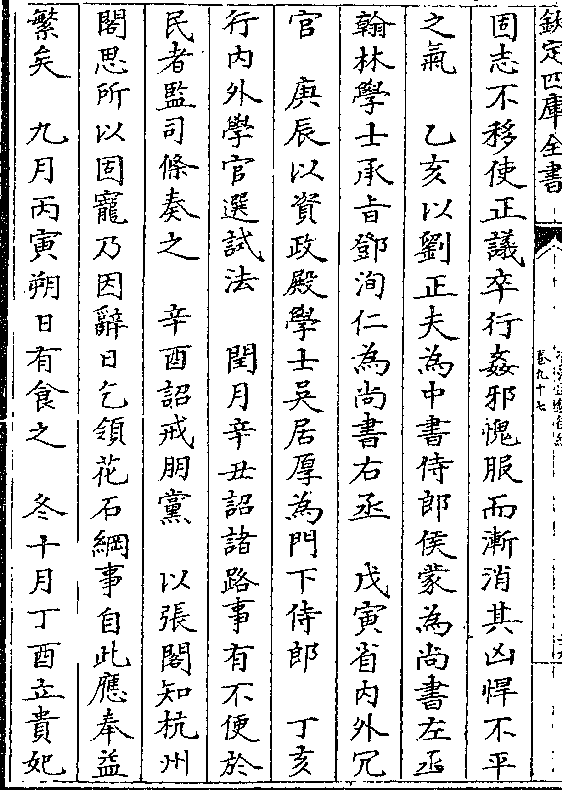 欽定四庫全書
卷九十七
固志不移使正議卒行姦邪愧服而漸消其凶悍不平
之氣　乙亥以劉正夫為中書侍郎侯蒙為尚書左丞
翰林學士承旨鄧洵仁為尚書右丞　戊寅省內外冗
官　庚辰以資政殿學士吳居厚為門下侍郎　丁亥
行內外學官選試法　閏月辛丑詔諸路事有不便於
民者監司條奏之　辛酉詔戒朋黨　以張閣知杭州
閣思所以固寵乃因辭日乞領花石綱事自此應奉益
繁矣　九月丙寅朔日有食之　冬十月丁酉立貴妃